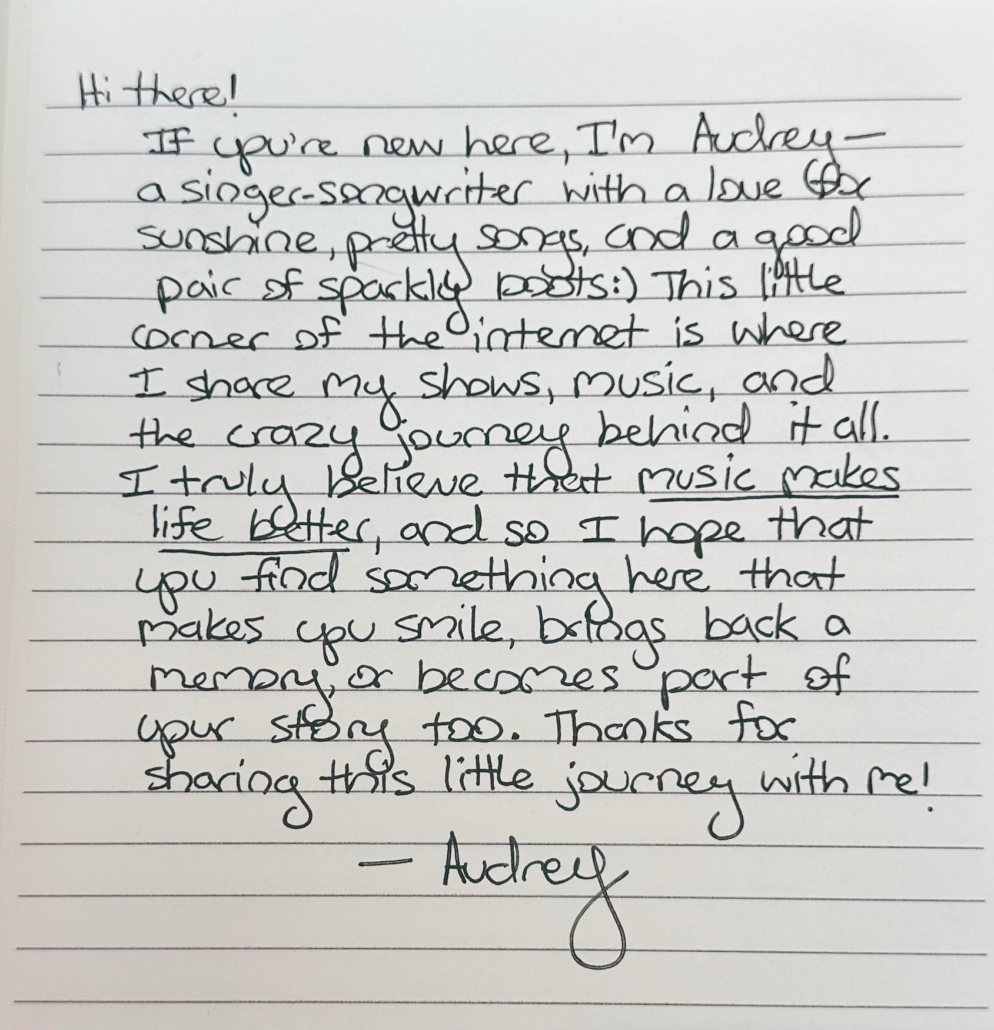 Hi there!
If you're new here, I'm Audrey—
a singer-songwriter with a love for
sunshine, pretty songs, and a good
pair of sparkly boots:) This little
corner of the internet is where
I share my shows, music, and
the crazy journey behind it all.
I truly believe that music makes
life better, and so I hope that
you find something here that
makes you smile, brings back a
memory, or becomes part of
your story too. Thanks for
sharing this little journey with me!
— Audrey